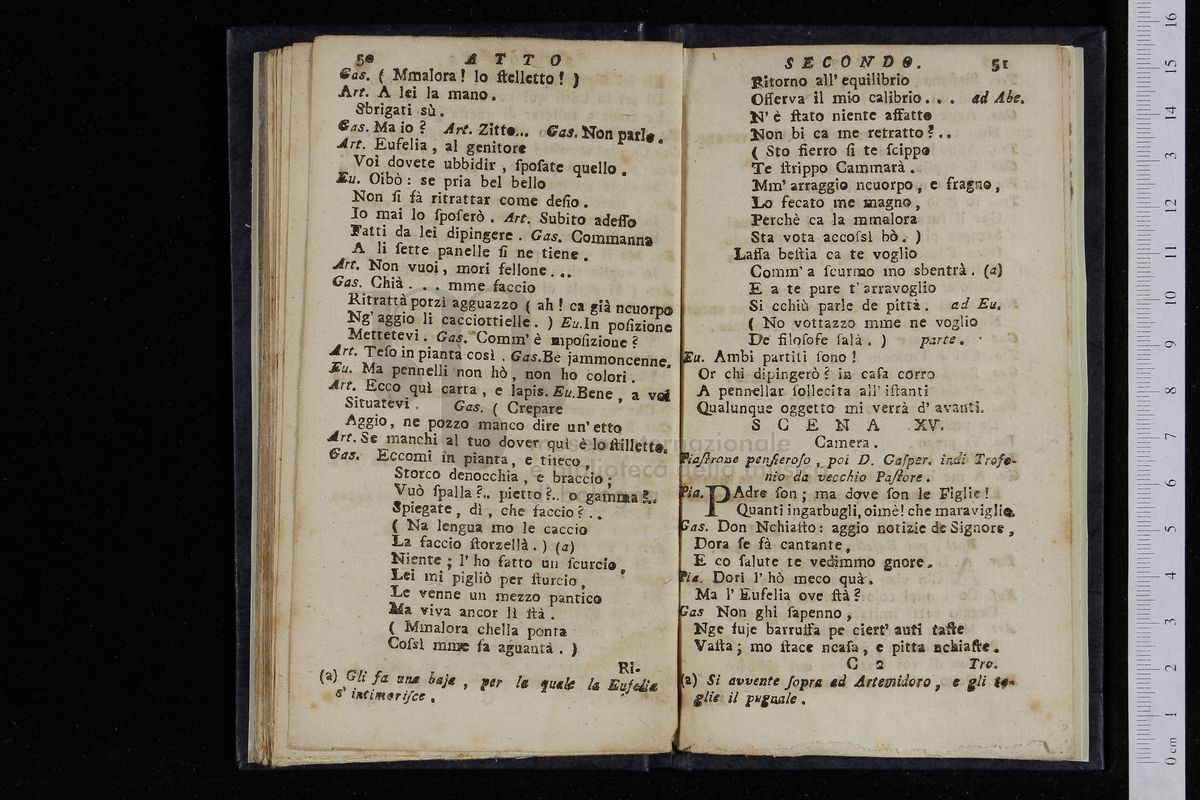 50 ATTO
Gas. ( Mmalora! lo ſtelletto! )
Art. A lei la mano.
Sbrigati sù.
Gas. Ma io? Art. Zitto... Gas. Non parlo.
Art. Eufelia, al genitore
Voi dovete ubbidir, ſpoſate quello.
Eu. Oibò: se pria bel bello
Non ſi fà ritrattar come deſio.
Io mai lo ſpoſerò. Art. Subito adeſſo
Fatti da lei dipingere. Gas. Commanna
A li ſette panelle ſi ne tiene.
Art. Non vuoi, mori fellone...
Gas. Chià... mme faccio
Ritrattà porzì agguazzo ( ah! ca già ncuorpo
Ng'aggio li cacciottielle. ) Eu. In poſizione
Mettetevi. Gas. Comm'è mpoſizione?
Art. Teſo in pianta così. Gas. Be jammoncenne.
Eu. Ma pennelli non hò, non ho colori.
Art. Ecco quì carta, e lapis. Eu. Bene, a voi
Situatevi. Gas. ( Crepare
Aggio, ne pozzo manco dire un'etto
Art. Se manchi al tuo dover quì è lo ſtilletto.
Gas. Eccomi in pianta, e titeco,
Storco denocchia, e braccio;
Vuò ſpalla?.. pietto?.. o gamma?..
Spiegate, dì, che faccio?..
( Na lengua mo le caccio
La faccio ſtorzellà. ) (a)
Niente; l'ho fatto un ſcurcio,
Lei mi pigliò per ſturcio,
Le venne un mezzo pantico
Ma viva ancor lì ſtà.
( Mmalora chella ponta
Coſsì mme fa aguantà. )
Ri-
(a) Gli fa una baja, per la quale la Eufelia
s'intimoriſce.
SECONDO. 51
Ritorno all'equilibrio
Oſſerva il mio calibro... ad Abe.
N'è ſtato niente affatto
Non bi ca me retratto?..
( Sto fierro ſi te ſcippo
Te ſtrippo Cammarà.
Mm'arraggio ncuorpo, e fragno,
Lo fecato me magno,
Perchè ca la mmalora
Sta vota accoſsì bò. )
Laſſa beſtia ca te voglio
Comm'a ſcurmo mo sbentrà. (a)
E a te pure t'arravoglio
Si cchiù parle de pittà. ad Eu.
( No vottazzo mme ne voglio
De filoſofe ſalà. ) parte.
Eu. Ambi partiti ſono!
Or chi dipingerò? in caſa corro
A pennellar ſollecita all'iſtanti
Qualunque oggetto mi verrà d'avanti.
SCENA XV.
Camera.
Piaſtrone penſieroſo, poi D. Gaſper. indi Trofo-
nio da vecchio Paſtore.
Pia. PAdre ſon; ma dove ſon le Figlie!
Quanti ingarbugli, oimè! che maraviglie.
Gas. Don Nchiaſto: aggio notizie de Signore,
Dora ſe fà cantante,
E co ſalute te vedimmo gnore.
Pia. Dori l'hò meco quà.
Ma l'Eufelia ove ſtà?
Gas Non ghi ſapenno,
Nge fuje barruffa pe ciert'auti taſte
Vaſta; mo ſtace ncaſa, e pitta nchiaſte.
C 2 Tro.
(a) Si avvente ſopra ad Artemidoro, e gli to-
glie il pugnale.